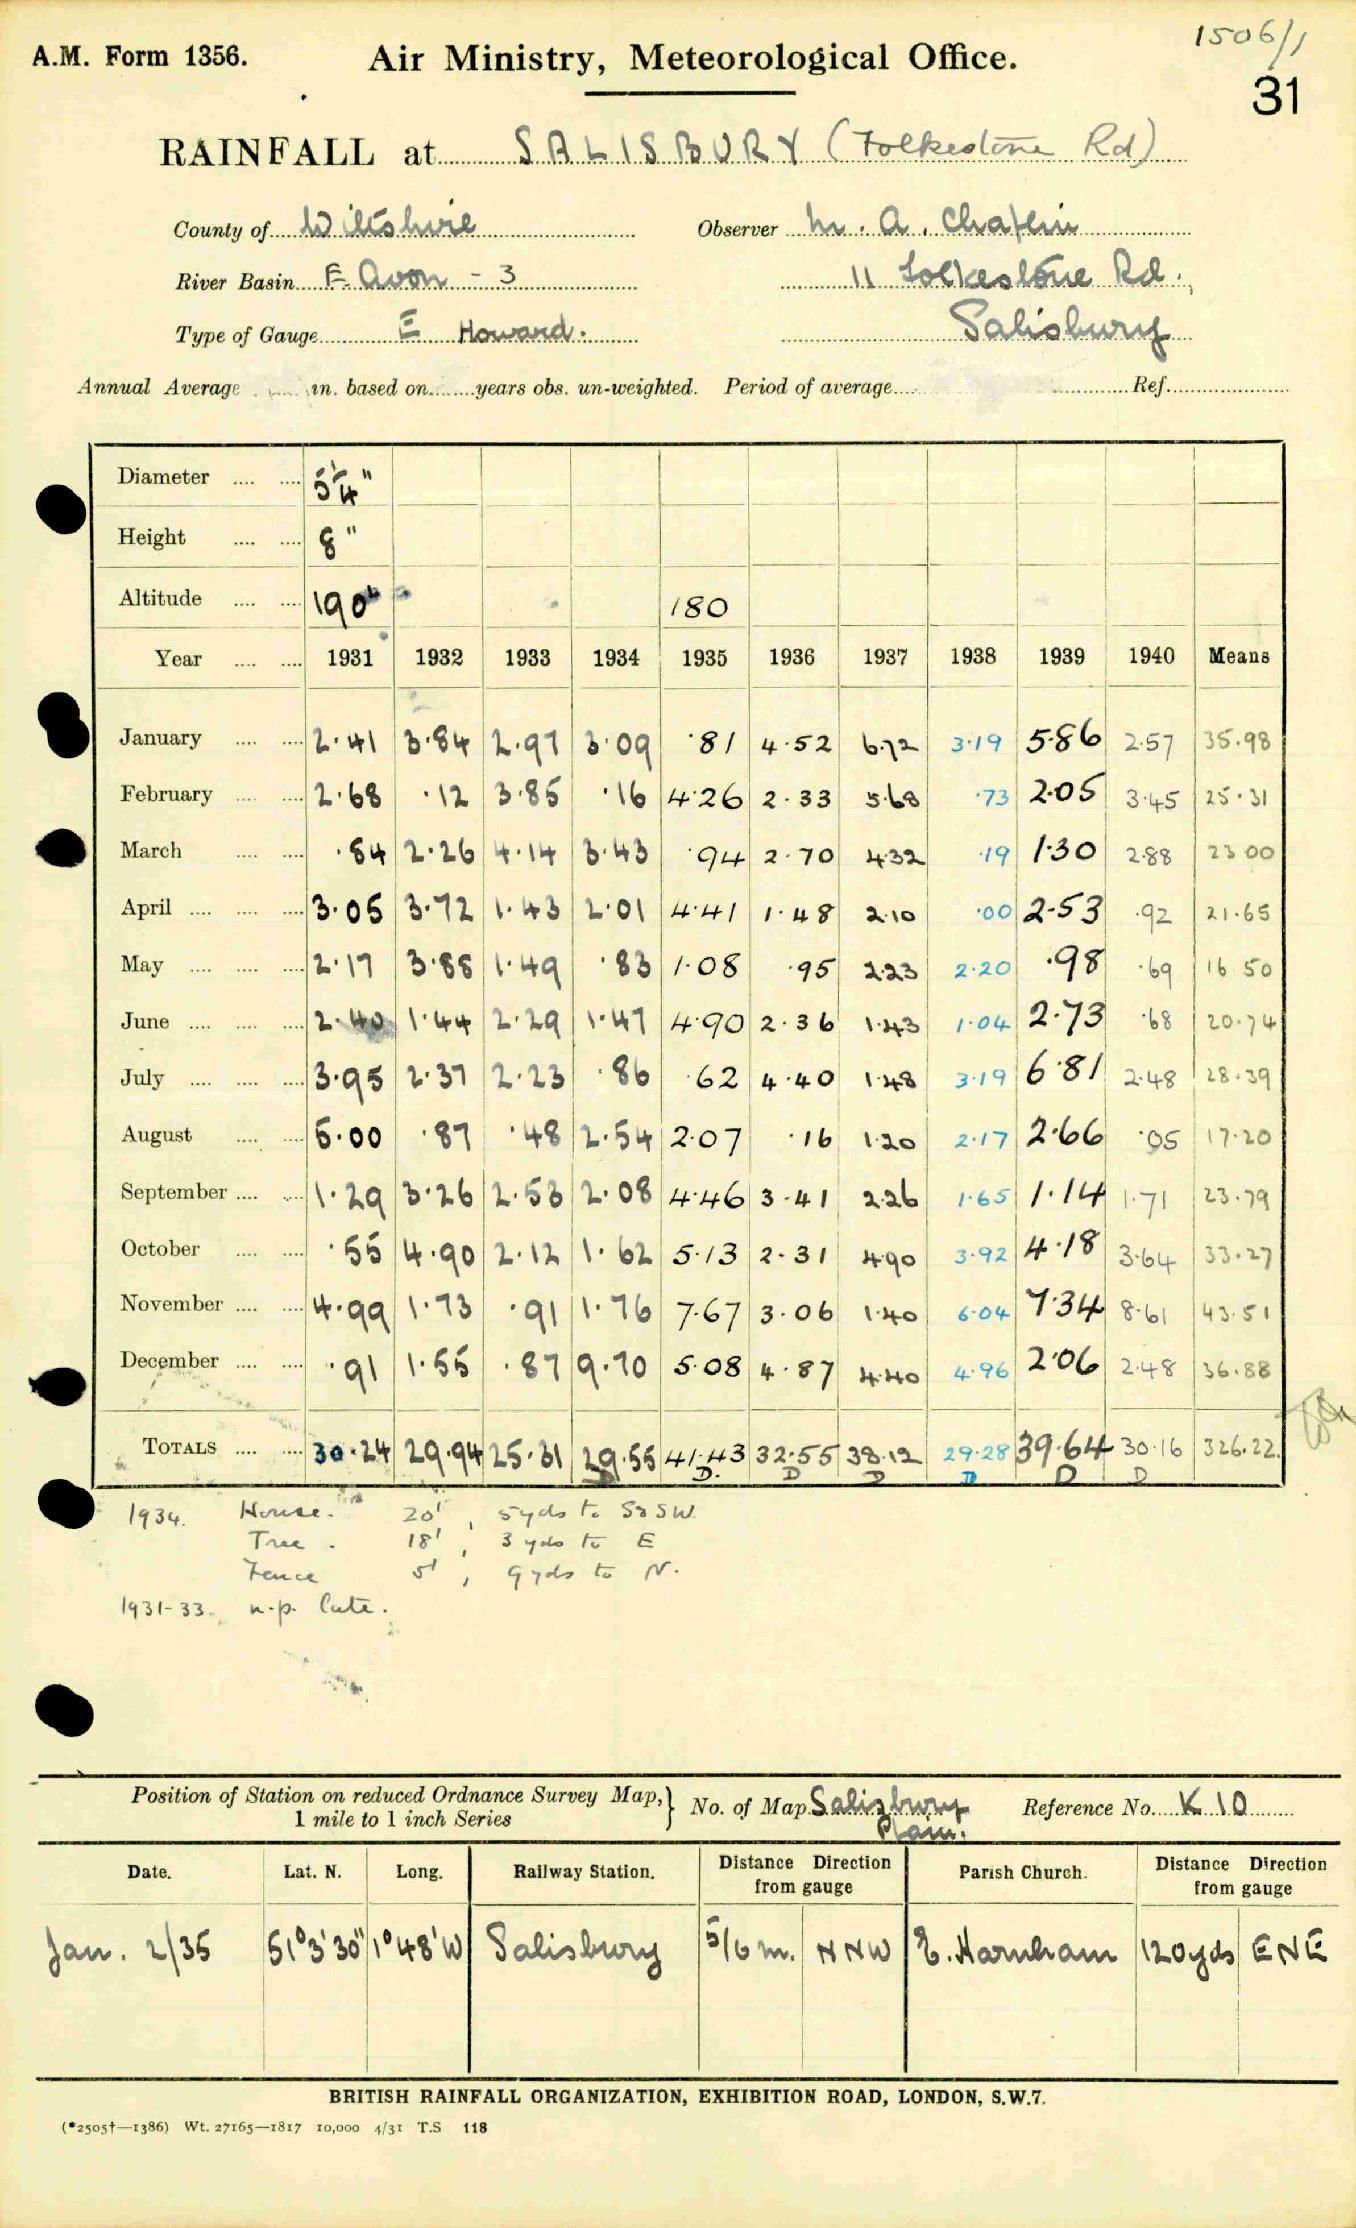 1506/1
A.M. Form 1356. Air Ministry, Meteorological Office.
31
RAINFALL at SALISBURY (Folkestone Rd)
County of Wiltshire Observer M. A. Chaplin
River Basin E. Avon - 3 11 Folkestone Rd.,
Type of Gauge E Howard. Salisbury
Annual Average in. based on years obs. un-weighted. Period of average Ref.
Diameter 5¼"
Height 8"
Altitude 190' 180
Year 1931 1932 1933 1934 1935 1936 1937 1938 1939 1940 Means
January 2·41 3·84 2·97 3·09 ·81 4·52 6·72 3·19 5·86 2·57 35·98
February 2·68 ·12 3·85 ·16 4·26 2·33 5·68 ·73 2·05 3·45 25·31
March ·84 2·26 4·14 3·43 ·94 2·70 4·32 ·19 1·30 2·88 23·00
April 3·05 3·72 1·43 2·01 4·41 1·48 2·10 ·00 2·53 ·92 21·65
May 2·17 3·88 1·49 ·83 1·08 ·95 2·23 2·20 ·98 ·69 16·50
June 2·40 1·44 2·29 1·47 4·90 2·36 1·43 1·04 2·73 ·68 20·74
July 3·95 2·37 2·23 ·86 ·62 4·40 1·48 3·19 6·81 2·48 28·39
August 5·00 ·87 ·48 2·54 2·07 ·16 1·20 2·17 2·66 ·05 17·20
September 1·29 3·26 2·53 2·08 4·46 3·41 2·26 1·65 1·14 1·71 23·79
October ·55 4·90 2·12 1·62 5·13 2·31 4·90 3·92 4·18 3·64 33·27
November 4·99 1·73 ·91 1·76 7·67 3·06 1·40 6·04 7·34 8·61 43·51
December ·91 1·55 ·87 9·70 5·08 4·87 4·40 4·96 2·06 2·48 36·88
TOTALS 30·24 29·94 25·31 29·55 41·43 32·55 38·12 29·28 39·64 30·16 326·22
D D. D D D D D
1934. House. 20', 5yds to S & SW
Tree . 18', 3 yds to E
Fence 5', 9 yds to N.
1931-33. n.p. late.
Position of Station on reduced Ordnance Survey Map, 1 mile to 1 inch Series } No. of Map Salisbury Plain. Reference No. K 10
Date. Lat. N. Long. Railway Station. Distance Direction from gauge Parish Church. Distance Direction from gauge
Jan. 2/35 51°3'30" 1°48'W Salisbury 5/6 m. NNW E. Harnham 120yds ENE
BRITISH RAINFALL ORGANIZATION, EXHIBITION ROAD, LONDON, S.W.7.
(*2505†—1386) Wt. 27165—1817 10,000 4/31 T.S 118